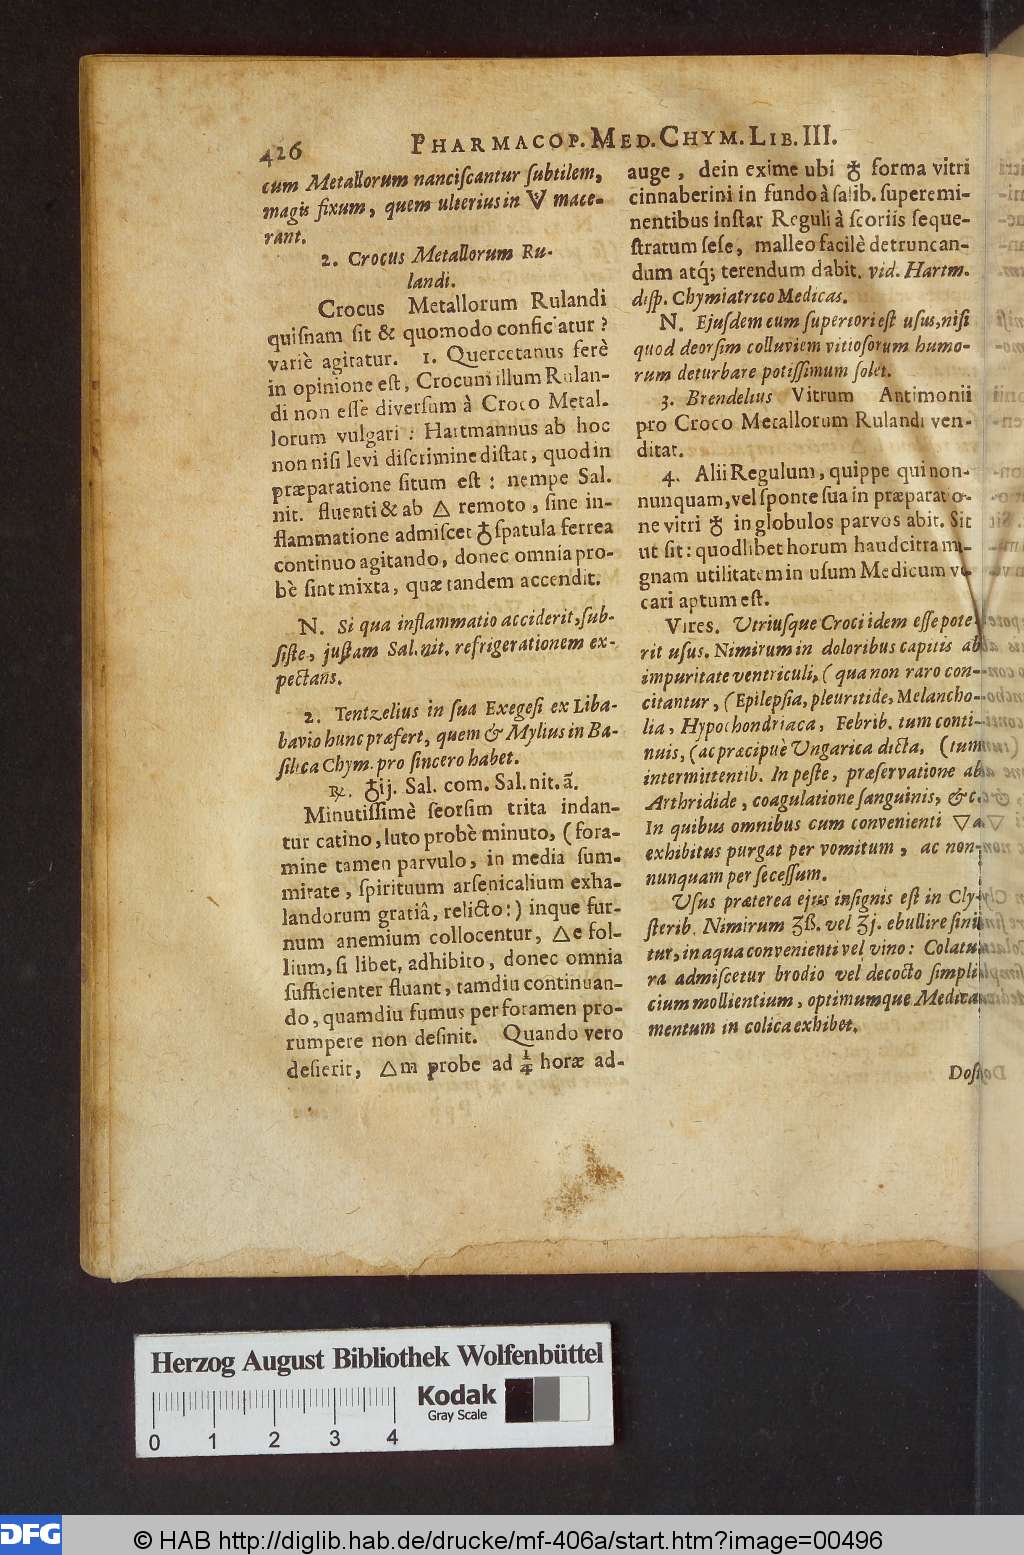 426
PHARMACOP. MED. CHYM. LIB. III.
cum Metallorum nanciſcantur ſubtilem,
magis fixum, quem ulterius in 🜊 mace-
rant.
2. Crocus Metallorum Ru-
landi.
Crocus Metallorum Rulandi
quiſnam ſit & quomodo conficiatur?
variè agitatur. 1. Quercetanus ferè
in opinione eſt, Crocum illum Rulan-
di non eſſe diverſum à Croco Metal-
lorum vulgari : Hartmannus ab hoc
non niſi levi diſcrimine diſtat, quod in
præparatione ſitum eſt : nempe Sal.
nit. fluenti & ab △ remoto, ſine in-
flammatione admiſcet ♁ ſpatula ferrea
continuo agitando, donec omnia pro-
bè ſint mixta, quæ tandem accendit.
N. Si qua inflammatio acciderit, ſub-
ſiſte, juſtam Sal. nit. refrigerationem ex-
pectans.
2. Tentzelius in ſua Exegeſi ex Liba-
bavio hunc præfert, quem & Mylius in Ba-
ſilica Chym. pro ſincero habet.
℞. ♁ij. Sal. com. Sal. nit. ã.
Minutiſſimè ſeorſim trita indan-
tur catino, luto probè minuto, (fora-
mine tamen parvulo, in media ſum-
mitate, ſpirituum arſenicalium exha-
landorum gratiâ, relicto:) inque fur-
num anemium collocentur, △e fol-
lium, ſi libet, adhibito, donec omnia
ſufficienter fluant, tamdiu continuan-
do, quamdiu fumus per foramen pro-
rumpere non deſinit. Quando vero
deſierit, △m probe ad ¼ horæ ad-
auge, dein exime ubi ♁ forma vitri
cinnaberini in fundo à ſalib. ſuperemi-
nentibus inſtar Reguli à ſcoriis ſeque-
ſtratum ſeſe, malleo facilè detruncan-
dum atq́; terendum dabit. vid. Hartm.
diſp. Chymiatrico Medicas.
N. Ejuſdem cum ſuperiori eſt uſus, niſi
quod deorſim colluviem vitioſorum humo-
rum deturbare potiſſimum ſolet.
3. Brendelius Vitrum Antimonii
pro Croco Metallorum Rulandi ven-
ditat.
4. Alii Regulum, quippe qui non-
nunquam, vel ſponte ſua in præparatio-
ne vitri ♁ in globulos parvos abit. Sit
ut ſit : quodlibet horum haud citra ma-
gnam utilitatem in uſum Medicum vo-
cari aptum eſt.
Vires. Utriuſque Croci idem eſſe pote-
rit uſus. Nimirum in doloribus capitis ab
impuritate ventriculi, (qua non raro con-
citantur, (Epilepſia, pleuritide, Melancho-
lia, Hypochondriaca, Febrib. tum conti-
nuis, (ac præcipuè Ungarica dicta, (tum
intermittentib. In peſte, præſervatione ab
Arthridide, coagulatione ſanguinis, &c.
In quibus omnibus cum convenienti ▽a
exhibitus purgat per vomitum, ac non-
nunquam per ſeceſſum.
Uſus præterea ejus inſignis eſt in Cly-
ſterib. Nimirum ʒß. vel ʒj. ebullire ſini-
tur, in aqua convenienti vel vino : Colatu-
ra admiſcetur brodio vel decocto ſimpli-
cium mollientium, optimumque Medica-
mentum in colica exhibet.
Doſi
Herzog August Bibliothek Wolfenbüttel
Kodak
Gray Scale
0 1 2 3 4
DFG
© HAB http://diglib.hab.de/drucke/mf-406a/start.htm?image=00496